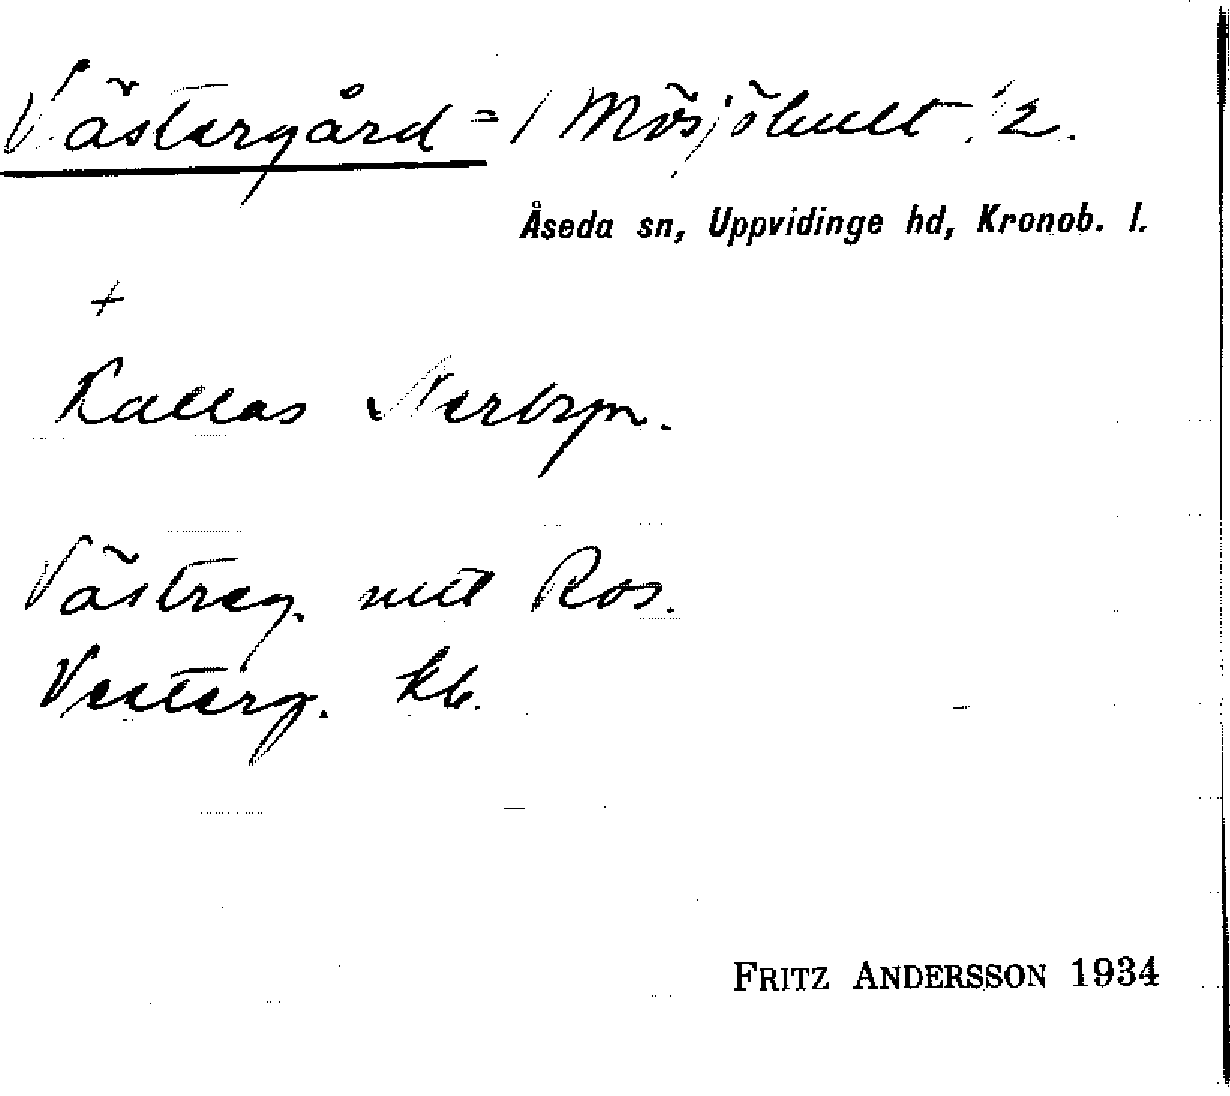 Västergård = / Mösjöhult 1/2.
Åseda sn, Uppvidinge hd, Kronob. l.
+
Kallas Nerbyn.
Västreg. utt Ros.
Vesterg. kb.
FRITZ ANDERSSON 1934